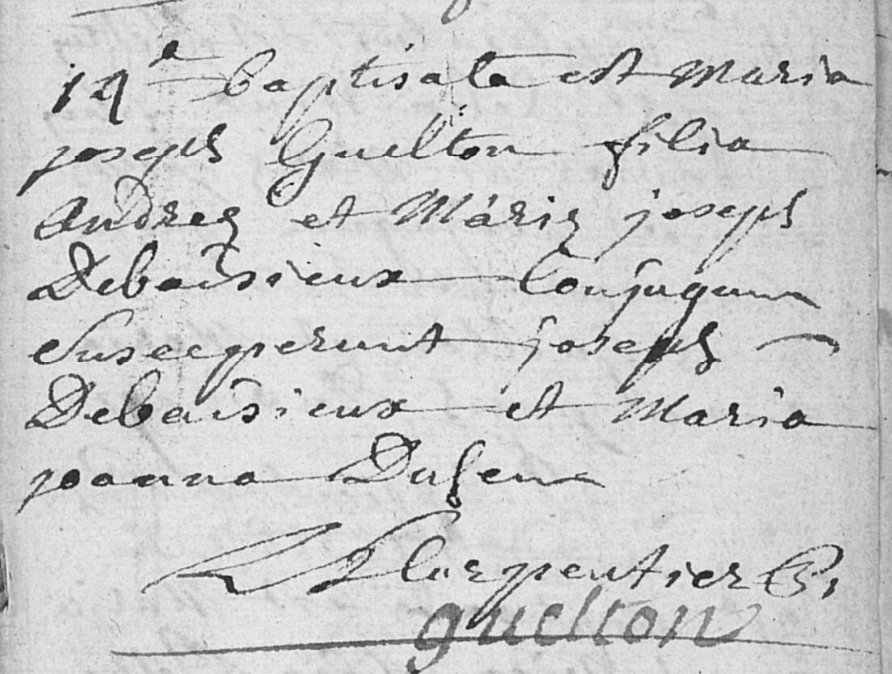 14a baptisata est Maria
joseph Guelton filia
Andreæ et Mariæ joseph
Debaisieux Conjugum
Susceperunt joseph
Debaisieux et Maria
joanna
Carpentier
guelton